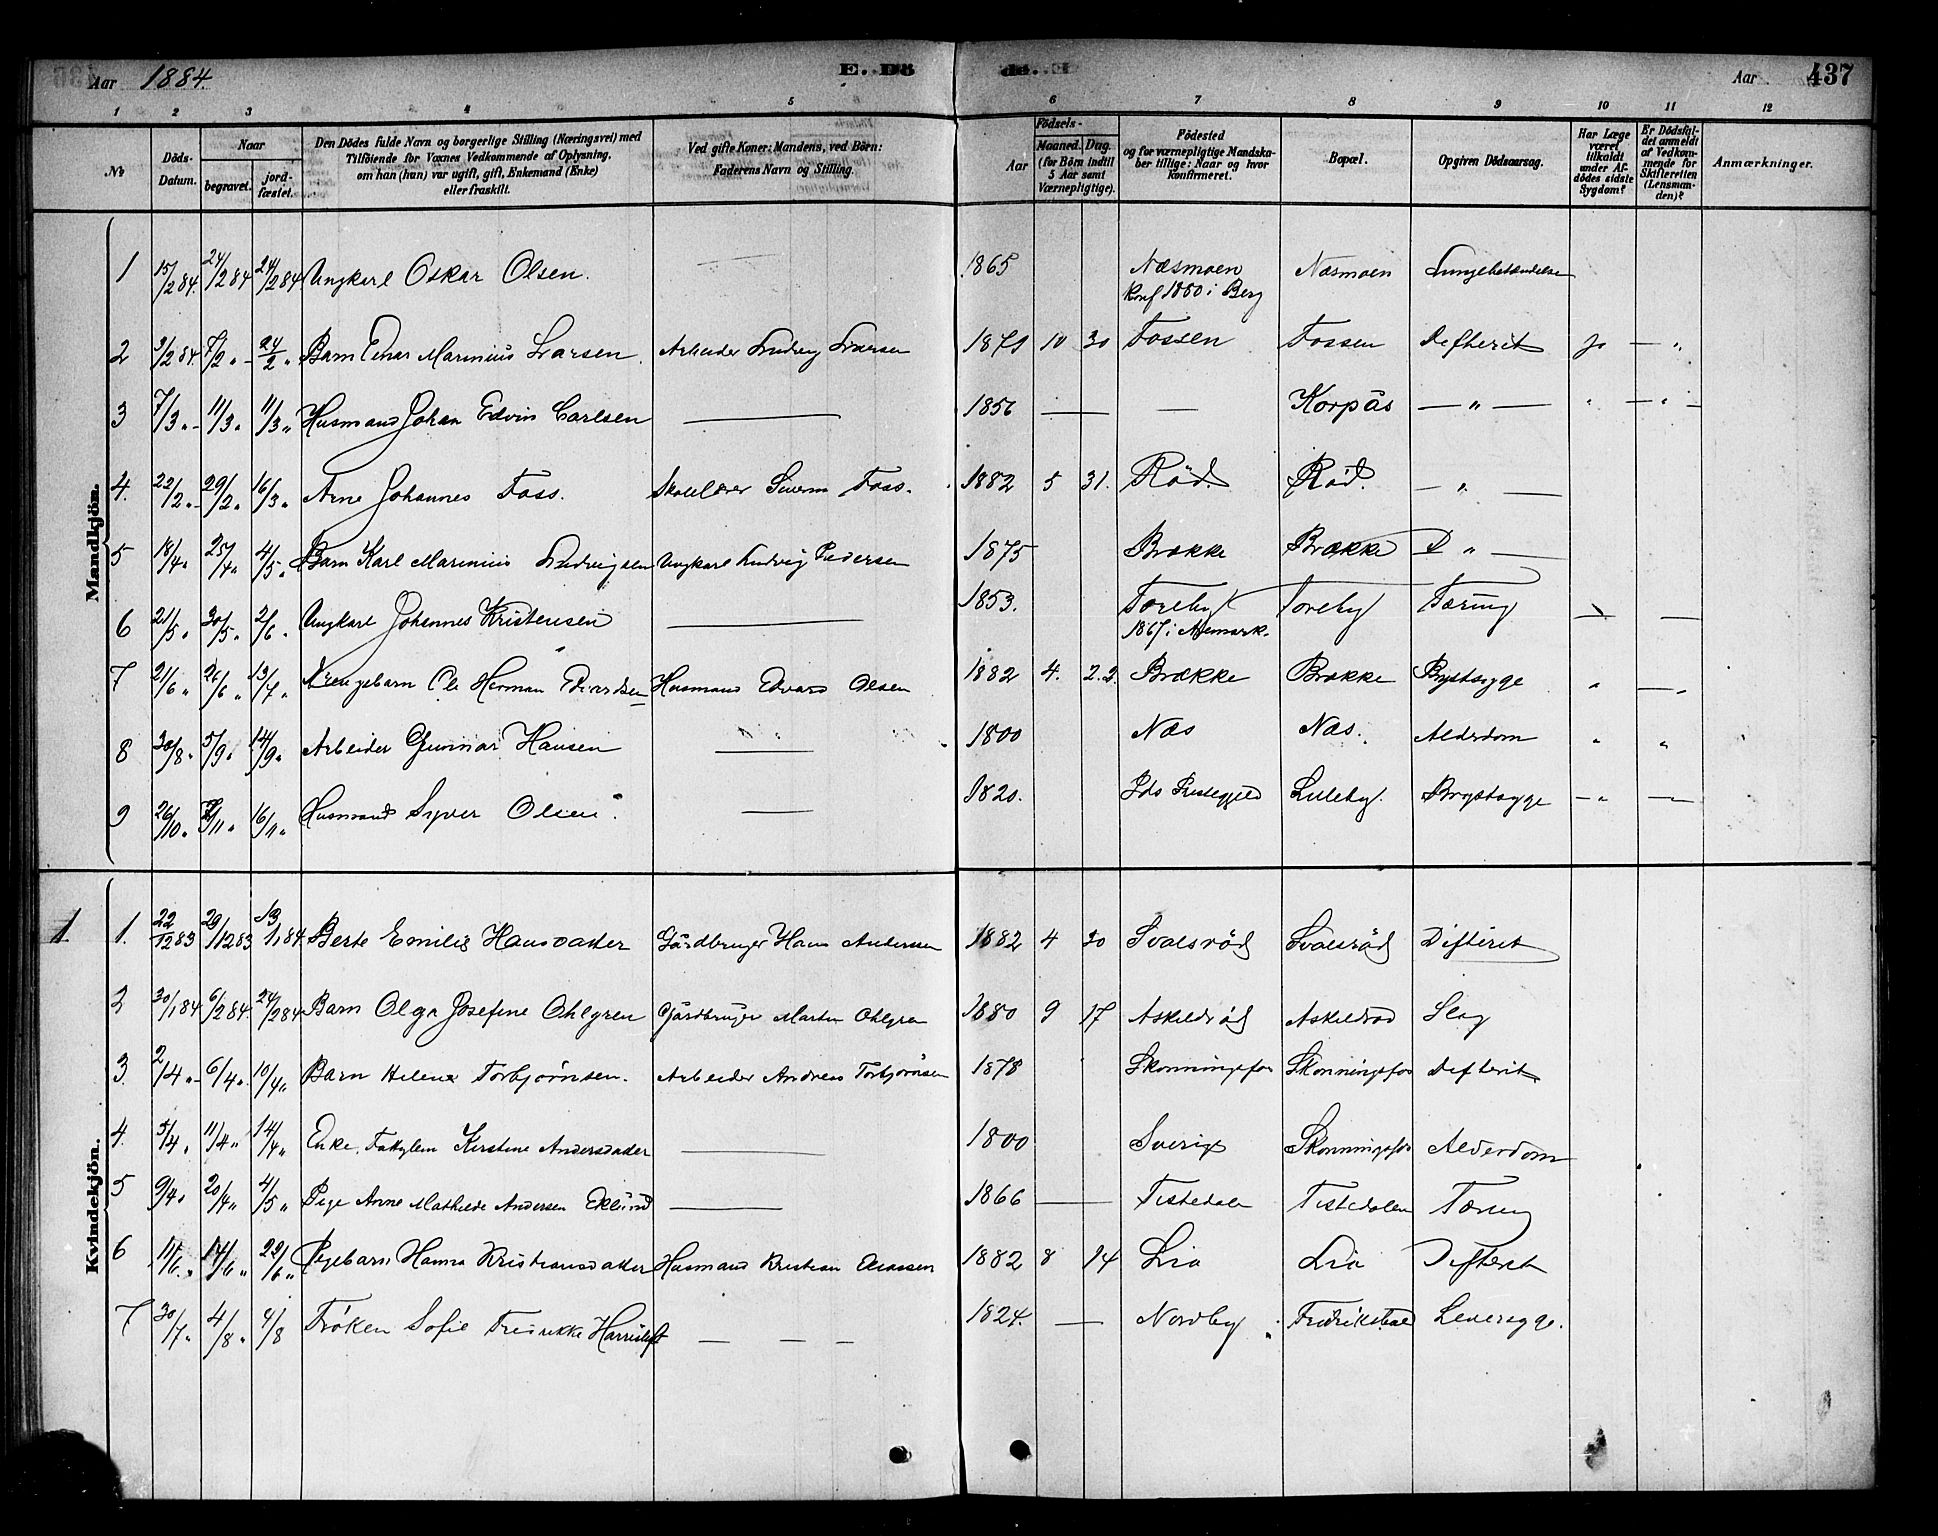 Aar 1884. E. Dö de. E Aar 437
1 2 3 4 5 6 7 8 9 10 11 12
No
Döds-Datum.
Naar
begravet.
jord-fæstet.
Den Dödes fulde Navn og borgerlige Stilling (Næringsvei) med
Tilföiende for Voxnes Vedkommende af Oplysning,
om han (hun) var ugift, gift, Enkemand (Enke)
eller fraskilt.
Ved gifte Koner: Mandens, ved Börn:
Faderens Navn og Stilling.
Födsels-
Aar
Maaned. Dag.
(for Börn indtil
5 Aar samt
Værnepligtige).
Födested
og for værnepligtige Mandska-
ber tillige: Naar og hvor
konfirmeret.
Bopæl.
Opgiven Dödsaarsag.
Har Læge
været
tilkaldt
under Af-
dödes sidste
Sygdom?
Er Dödsfal-
det anmeldt
af Vedkom-
mende for
Skifteretten
(Lensman-
den)?
Anmærkninger.
Mandkjön.
1 15/2 84. 24/2 84 24/2 84 Ungkarl Oskar Olsen. 1865 Næsmoen Næsmoen Lungebetændelse
Konf 1880 i Berg
2 3/2 84. 7/2 " 24/2 " Barn Einar Marinius Larsen. Arbeider Ludvig Larsen 1879 10 30 Fossen Fossen Defterit Ja — "
3 7/3 " 11/3 " 11/3 " Husmand Johan Edvin Carlsen — 1856 — — Korpås — " — " — " —
4. 22/2 " 29/2 " 16/3 " Arne Johannes Foss. Skolelærer Foss. 1882 5 31. Röd. Röd. — " —
5 18/4 " 25/4 " 4/5 " Barn Karl Marinius Ludvigsen Ungkarl Ludvig Pedersen 1875 Brække Brække D " —
6 21/5 " 30/5 " 2/6 " Ungkarl Johannes Kristensen — 1853. Toreby Toreby Tæring
1867 i Aremark.
7 21/6 " 26/6 " 13/7 " Drengebarn Ole Herman Edvardsen Husmand Edvard Olsen 1882 4. 22. Brække Brække Brystsyge " — "
8 30/8 " 5/9 " 14/9 " Arbeider Gunnar Hansen — 1800 Næs Næs. Alderdom " "
9 26/10 " /11 " 16/11 " Husmand Syver Olsen. — 1820. Ids Prestegjeld Luleby. Brystsyge — " —
Kvindekjön.
1 1. 22/12 83 29/12 83 13/1 84. Berte Emilie Hansdatter Gårdbruger Hans Andersen 1882 4 30 Svalsröd Svalsröd Difterit
2 30/1 84 6/2 84. 24/2 84 Barn Olga Josefine Ohlgren Gårdbruger Martin Ohlgren 1880 9 17 Askildröd Askildröd Slag
3. 2/4 " 6/4 " 10/4 " Barn Helene Torbjørnsen. Arbeider Andreas Torbjørnsen 1878 Skonningsfos Skonningsfos Defterit
4. 5/4 " 11/4 " 14/4 " Enke, Kirstine Andersdatter — 1800 Sverige Skonningsfos Alderdom
5 9/4 " 20/4 " 4/5 " Pige Anne Mathilde Andersen Eklund — 1866 — Tistedalen Tistedalen Tæring
6 11/6 " 14/6 " 22/6 " Pigebarn Hanna Kristiansdatter Husmand Kristian 1882 8 14 Lia Lia Difterit
7 30/7 " 4/8 " 4/8 Frøken Sofie Fredrikke — — — 1824. — Nordby Fredrikshald Leversyge.